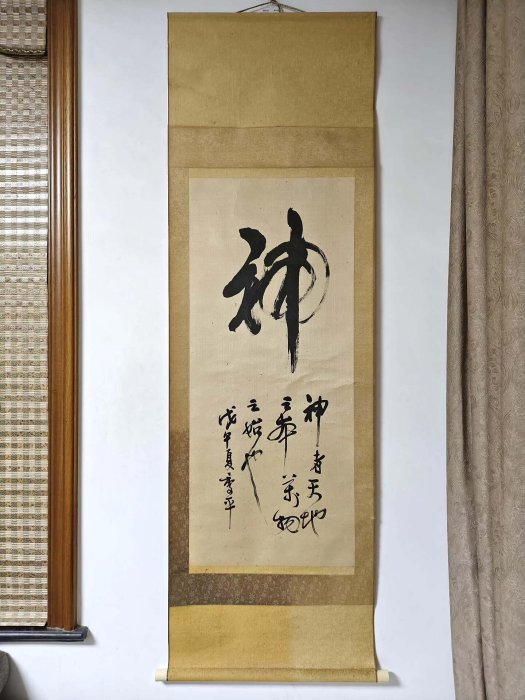 神
神者天地
之本萬物
之始也
戊午夏平